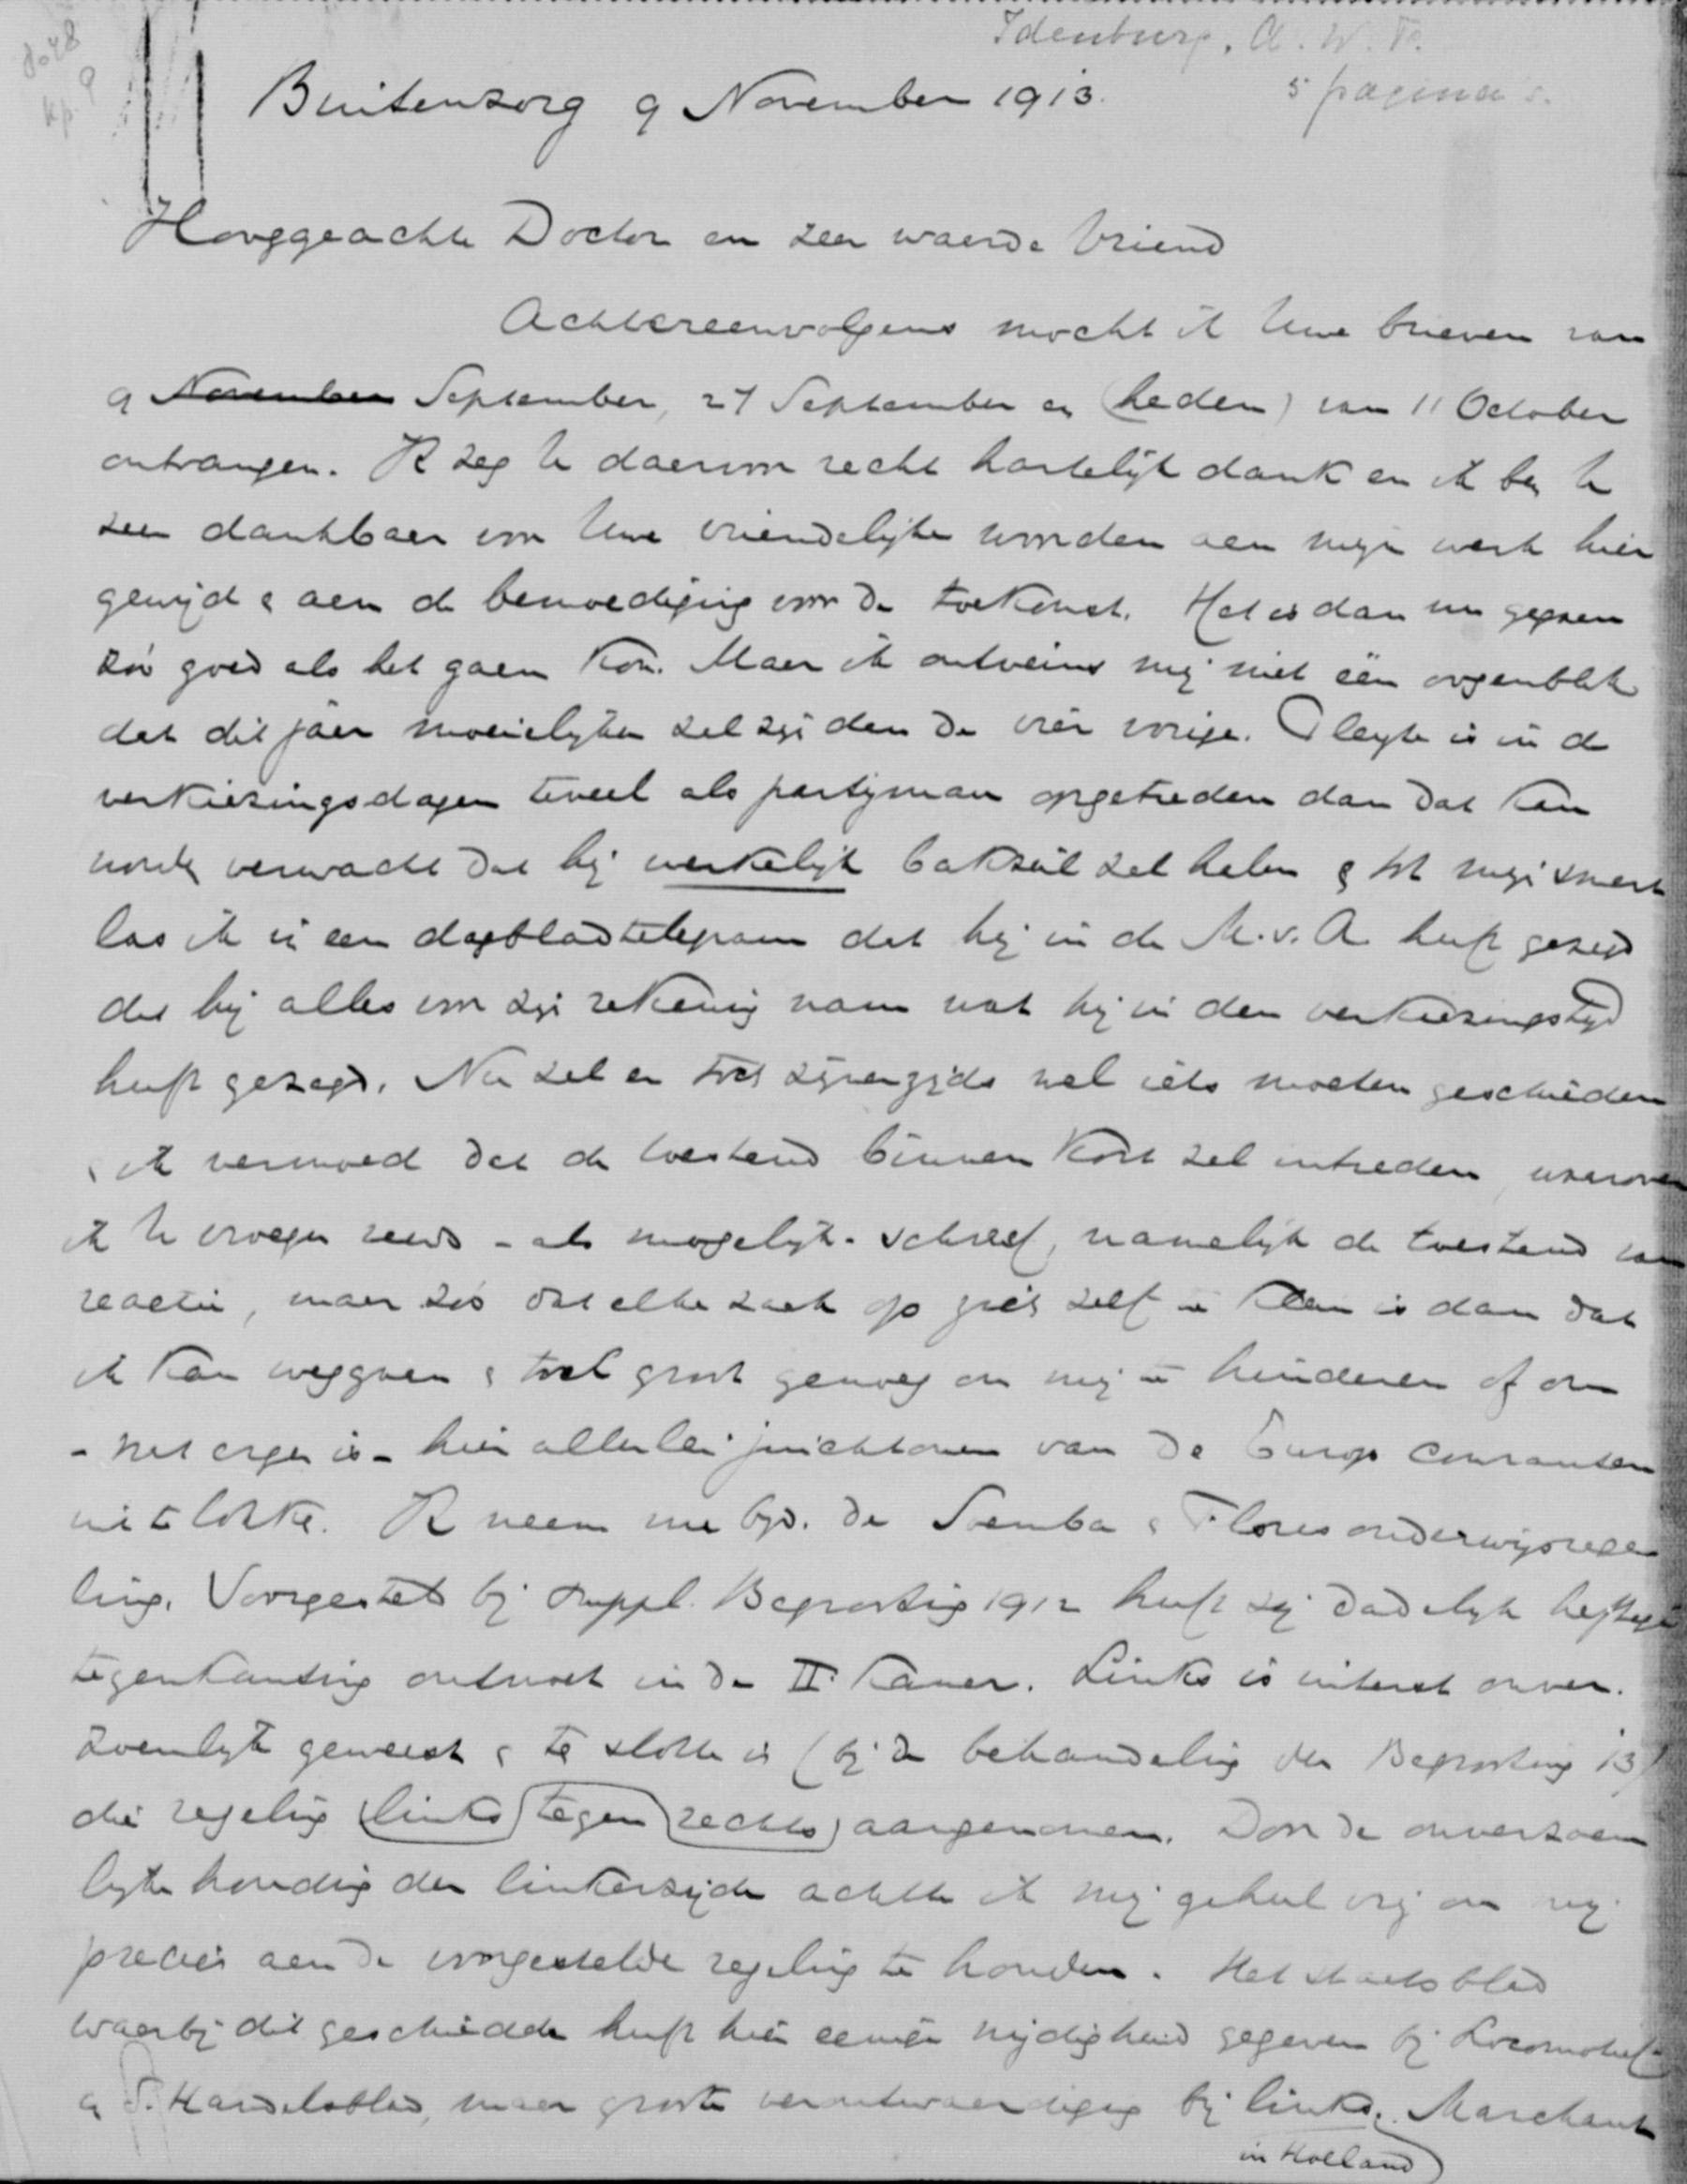 Idenburg, A. W. F.
5 pagina's.
Buitenzorg 9 November 1913.
Hooggeachte Doctor en zeer waarde Vriend
Achtereenvolgens mocht ik Uwe brieven van
9 November September, 27 September en (heden) van 11 October
ontvangen. Ik zeg U daarvoor recht hartelijk dank en ik ben U
zeer dankbaar voor Uwe vriendelijke woorden aan mijn werk hier
gewijd & aan de bemoediging voor de toekomst. Het is dan nu gegaan
zóó goed als het gaan kon. Maar ik ontveins mij niet één oogenblik
dat dit jaar moeielijker zal zijn dan de vier vorige. Pleyte is in de
verkiezingsdagen teveel als partijman opgetreden dan dat kan
worden verwacht dat hij werkelijk bakzeil zal halen & tot mijn smart
las ik in een dagbladtelegram dat hij in de M.v.A. heeft gezegd
dat hij alles voor zijn rekening nam wat hij in den verkiezingstijd
heeft gezegd. Nu zal er toch zijnerzijds wel iets moeten geschieden
& ik vermoed dat de toestand binnen kort zal intreden, waarover
ik U vroeger reeds - als mogelijk - schreef, namelijk de toestand van
reactie, maar zóó dat elke zaak op zich zelf te klein is dan dat
ik kan weggaan & toch groot genoeg om mij te hinderen of om
- wat erger is - hier allerlei juichtonen van de Europ couranten
uit te lokken. Ik neem nu bijv. de Soemba & Flores onderwijsrege
ling. Voorgesteld bij suppl. Begrooting 1912 heeft zij dadelijk heftige
tegenkanting ontmoet in de II Kamer. Links is uiterst onver.
zoenlijk geweest & te slotte is (bij de behandeling der Begrooting 13)
die regeling links tegen rechts aangenomen. Door de onverzoen
lijke houding der linkerzijde achtte ik mij geheel vrij om mij
precies aan de voorgestelde regeling te houden. Het staatsblad
waarbij dit geschiedde heeft hier eenige nijdigheid gegeven bij Locomotief
& S. Handelsblad, maar groote verontwaardiging bij links. Marchant
in Holland